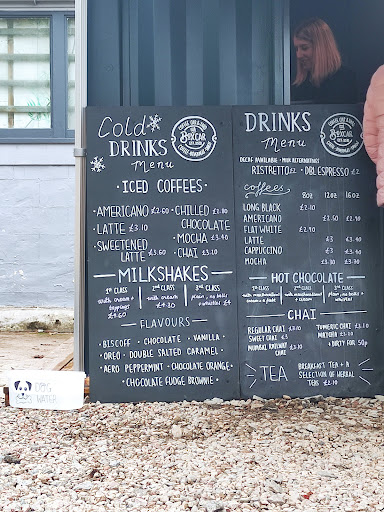 Cold
DRINKS
Menu
BOXCAR
· ICED COFFEES ·
· AMERICANO £2.60
· LATTE £3.10
· SWEETENED
LATTE £3.60
· CHILLED £2.80
CHOCOLATE
· MOCHA £3.40
· CHAI £3.10
— MILKSHAKES —
1ST CLASS
with cream +
toppings
£4.60
2ND CLASS
with cream
£4.30
3RD CLASS
plain, no bells
+ whistles £4
— FLAVOURS —
· BISCOFF · CHOCOLATE · VANILLA ·
· OREO · DOUBLE SALTED CARAMEL ·
· AERO PEPPERMINT · CHOCOLATE ORANGE ·
· CHOCOLATE FUDGE BROWNIE ·
DRINKS
Menu
BOXCAR
DECAF AVAILABLE · MILK ALTERNATIVES
RISTRETTO £2 · DBL ESPRESSO £2
coffees
8oz 12oz 16oz
LONG BLACK £2.10
AMERICANO £2.50 £2.90
FLAT WHITE £2.90
LATTE £3 £3.40
CAPPUCCINO £3 £3.40
MOCHA £3.30 £3.70
— HOT CHOCOLATE —
1ST CLASS
2ND CLASS
3RD CLASS
plain, no bells +
whistles
— CHAI —
REGULAR CHAI £3.10
SWEET CHAI £3
MUMBAI RAILWAY
CHAI
TURMERIC CHAI £3.10
MATCHA £3.10
· DIRTY FOR 50p
TEA
BREAKFAST TEA + A
SELECTION OF HERBAL
TEAS £2.10
DOG
WATER